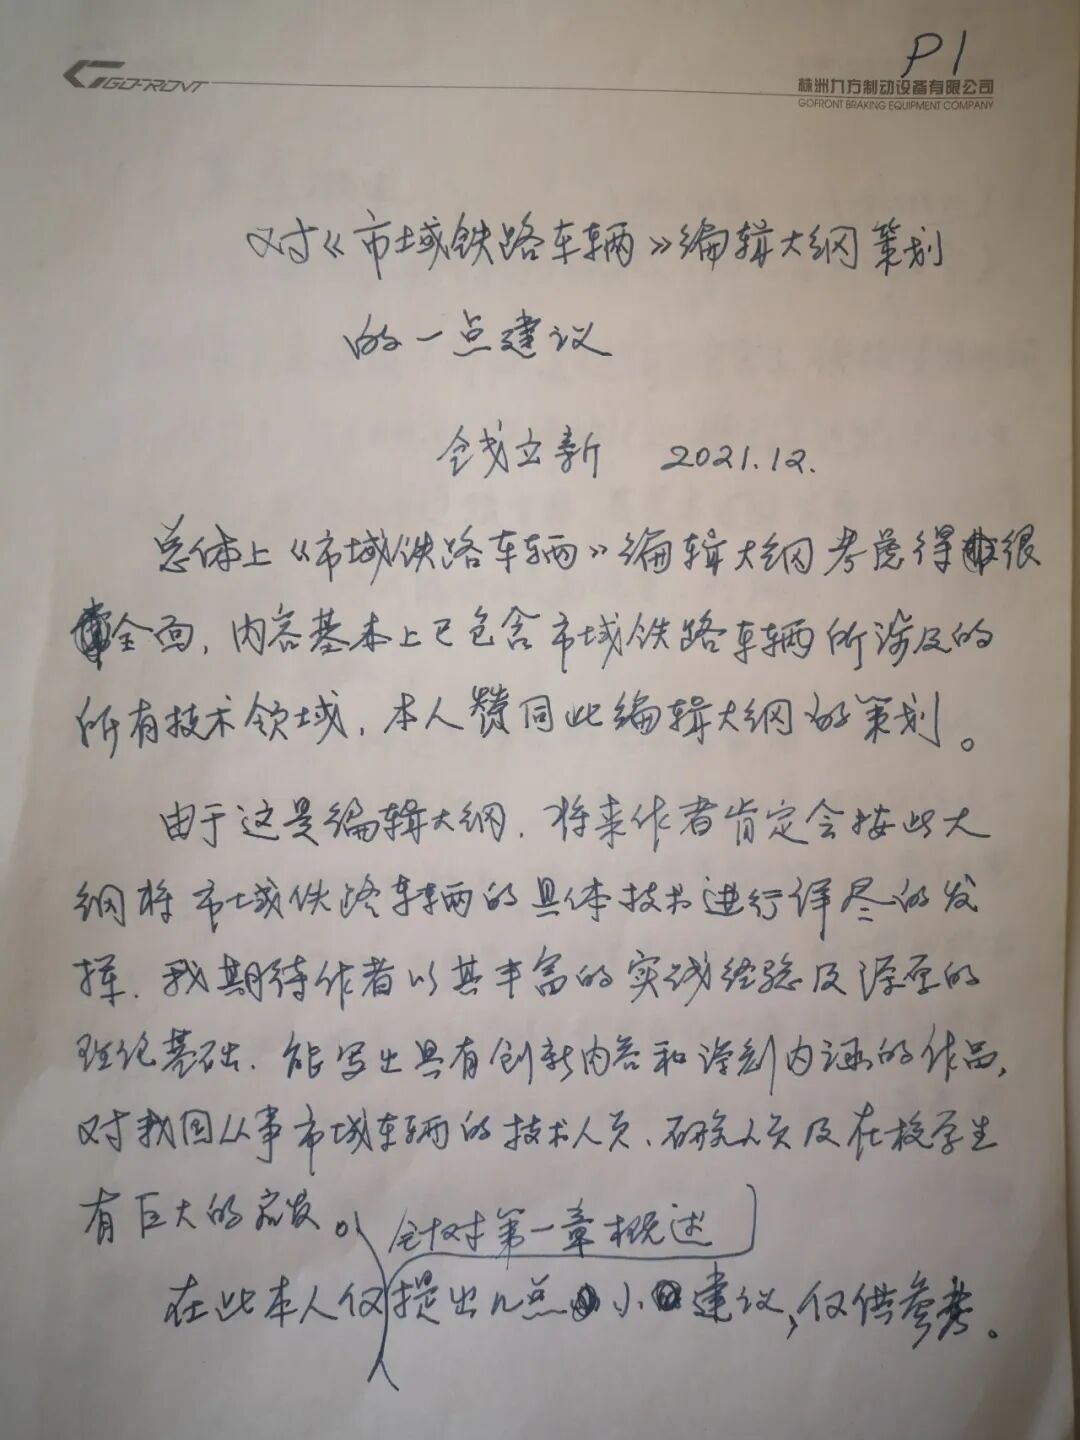 P1
GOFRONT
株洲九方制动设备有限公司
GOFRONT BRAKING EQUIPMENT COMPANY
对《市域铁路车辆》编辑大纲策划
的一点建议
钱立新 2021.12.
总体上《市域铁路车辆》编辑大纲考虑得很
全面,内容基本上已包含市域铁路车辆所涉及的
所有技术领域,本人赞同此编辑大纲的策划。
由于这是编辑大纲,将来作者肯定会按此大
纲将市域铁路车辆的具体技术进行详尽的发
挥,我期待作者以其丰富的实践经验及深厚的
理论基础,能写出具有创新内容和深刻内涵的作品,
对我国从事市域车辆的技术人员、研究人员及在校学生
有巨大的启发。
针对第一章概述
在此本人仅提出几点小建议,仅供参考。